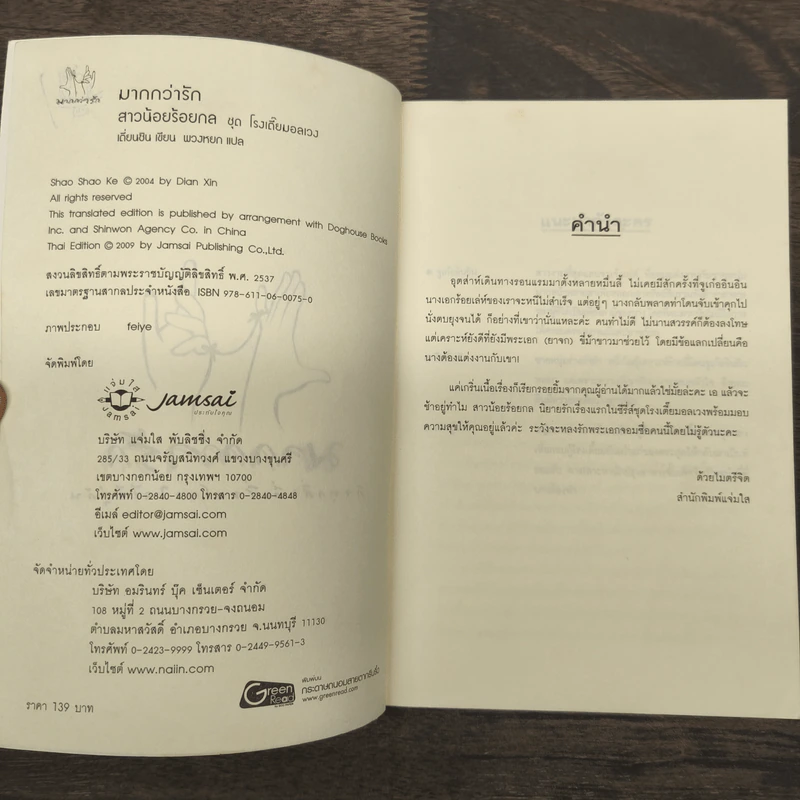 มากกว่ารัก
มากกว่ารัก
สาวน้อยร้อยกล ชุด โรงเตี๊ยมอลเวง
เตี่ยนซิน เขียน พวงหยก แปล
Shao Shao Ke © 2004 by Dian Xin
All rights reserved
This translated edition is published by arrangement with Doghouse Books
Inc. and Shinwon Agency Co. in China
Thai Edition © 2009 by Jamsai Publishing Co.,Ltd.
สงวนลิขสิทธิ์ตามพระราชบัญญัติลิขสิทธิ์ พ.ศ. 2537
เลขมาตรฐานสากลประจำหนังสือ ISBN 978-611-06-0075-0
ภาพประกอบ feiye
จัดพิมพ์โดย
แจ่มใส
JAMSAI
Jamsai
ประทับใจคุณ
บริษัท แจ่มใส พับลิชชิ่ง จำกัด
285/33 ถนนจรัญสนิทวงศ์ แขวงบางขุนศรี
เขตบางกอกน้อย กรุงเทพฯ 10700
โทรศัพท์ 0-2840-4800 โทรสาร 0-2840-4848
อีเมล์ editor@jamsai.com
เว็บไซต์ www.jamsai.com
จัดจำหน่ายทั่วประเทศโดย
บริษัท อมรินทร์ บุ๊ค เซ็นเตอร์ จำกัด
108 หมู่ที่ 2 ถนนบางกรวย-จงถนอม
ตำบลมหาสวัสดิ์ อำเภอบางกรวย จ.นนทบุรี 11130
โทรศัพท์ 0-2423-9999 โทรสาร 0-2449-9561-3
เว็บไซต์ www.naiin.com
Green Read
พิมพ์บน
กระดาษถนอมสายตากรีนรี้ด
www.greenread.com
ราคา 139 บาท
คำนำ
อุตส่าห์เดินทางรอนแรมมาตั้งหลายหมื่นลี้ ไม่เคยมีสักครั้งที่จูเก๋ออินอิน
นางเอกร้อยเล่ห์ของเราจะหนีไม่สำเร็จ แต่อยู่ๆ นางกลับพลาดท่าโดนจับเข้าคุกไป
นั่งตบยุงจนได้ ก็อย่างที่เขาว่านั่นแหละค่ะ คนทำไม่ดี ไม่นานสวรรค์ก็ต้องลงโทษ
แต่เคราะห์ยังดีที่ยังมีพระเอก (ยาจก) ขี่ม้าขาวมาช่วยไว้ โดยมีข้อแลกเปลี่ยนคือ
นางต้องแต่งงานกับเขา!
แค่เกริ่นเนื้อเรื่องก็เรียกรอยยิ้มจากคุณผู้อ่านได้มากแล้วใช่มั้ยล่ะคะ เอ แล้วจะ
ช้าอยู่ทำไม สาวน้อยร้อยกล นิยายรักเรื่องแรกในซีรี่ส์ชุดโรงเตี๊ยมอลเวงพร้อมมอบ
ความสุขให้คุณอยู่แล้วค่ะ ระวังจะหลงรักพระเอกจอมซื่อคนนี้โดยไม่รู้ตัวนะคะ
ด้วยไมตรีจิต
สำนักพิมพ์แจ่มใส